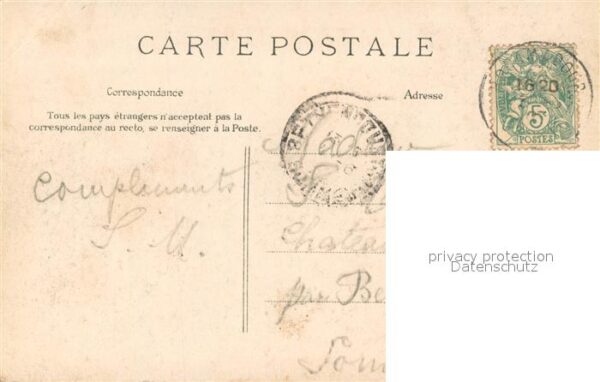 CARTE POSTALE
Correspondance
Adresse
Tous les pays étrangers n'acceptent pas la
correspondance au recto, se renseigner à la Poste.
16 20
5
POSTES
Compliments
S. M.
Madame
Château
par Be
Som
privacy protection
Datenschutz